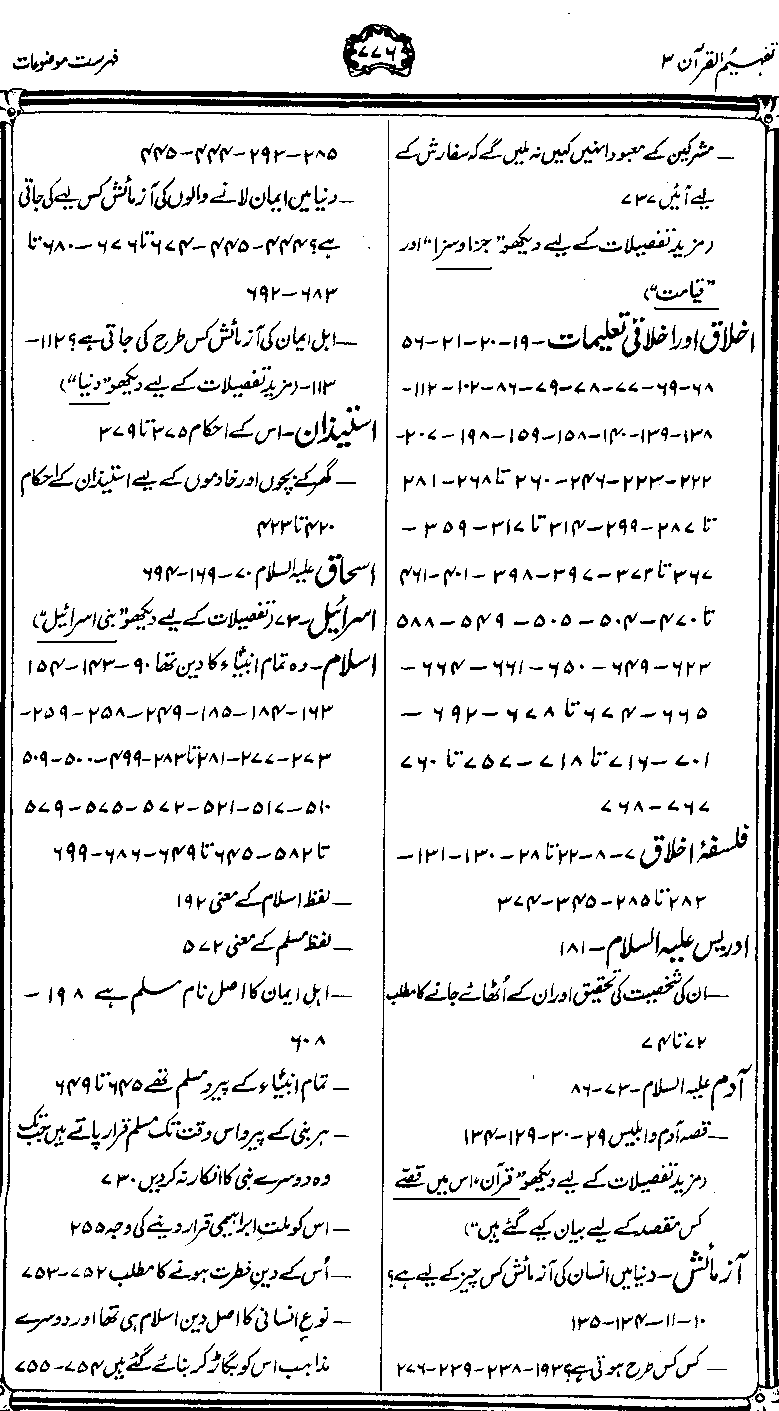 تفہیم القرآن ۳
۷۷۶
فہرست موضوعات
– مشرکین کے معبود انہیں کہیں نہ ملیں گے کہ سفارش کے
لیے آئیں ۷۳۷
(مزید تفصیلات کے لیے دیکھو "جزا و سزا" اور
"قیامت")
اخلاق اور اخلاقی تعلیمات – ۱۹-۲۰-۲۱-۵۶
۶۸-۶۹-۷۷-۷۸-۷۹-۸۶-۱۰۲-۱۱۲-
۱۳۸-۱۳۹-۱۴۰-۱۵۸-۱۵۹-۱۹۸-۲۰۷-
۲۲۲-۲۲۳-۲۴۶-۲۶۰ تا ۲۶۸-۲۸۱
تا ۲۸۷-۲۹۹-۳۱۴ تا ۳۱۷-۳۵۹-
۳۶۷ تا ۳۷۳-۳۹۷-۳۹۸-۴۰۱-۴۶۱
تا ۴۷۰-۵۰۴-۵۰۵-۵۴۹-۵۸۸
۶۲۳-۶۴۹-۶۵۰-۶۶۱-۶۶۴-
۶۶۵-۶۷۴ تا ۶۷۸-۶۹۲-
۷۰۱-۷۱۶ تا ۷۱۸-۷۵۷ تا ۷۶۰
۷۶۷-۷۶۸
فلسفۂ اخلاق ۷-۸-۲۲ تا ۲۸-۱۳۰-۱۳۱-
۲۸۳ تا ۲۸۵-۳۴۵-۳۷۴
ادریس علیہ السلام – ۱۸۱
– ان کی شخصیت کی تحقیق اور ان کے اُٹھائے جانے کا مطلب
۷۲ تا ۷۴
آدم علیہ السلام – ۷۳-۸۶
– قصہ آدم و ابلیس ۲۹-۳۰-۱۲۹-۱۳۴
(مزید تفصیلات کے لیے دیکھو "قرآن، اس میں قصے
کس مقصد کے لیے بیان کیے گئے ہیں")
آزمائش – دنیا میں انسان کی آزمائش کس چیز کے لیے ہے؟
۱۰-۱۱-۱۳۴-۱۳۵
– کس کس طرح ہوتی ہے؟ ۱۹۳-۲۳۸-۲۳۹-۲۷۶
۲۸۵-۲۹۳-۴۴۴-۴۴۵
– دنیا میں ایمان لانے والوں کی آزمائش کس لیے کی جاتی
ہے؟ ۴۴۴-۴۴۵-۶۷۴ تا ۶۷۶-۶۸۰ تا
۶۸۳-۶۹۲
– اہل ایمان کی آزمائش کس طرح کی جاتی ہے؟ ۱۱۲-
۱۱۳-(مزید تفصیلات کے لیے دیکھو "دنیا")
استیذان – اس کے احکام ۳۷۵ تا ۳۷۹
– گھر کے بچوں اور خادموں کے لیے استیذان کے احکام
۴۲۰ تا ۴۲۳
اسحاق علیہ السلام ۷۰-۱۶۹-۶۹۴
اسرائیل – ۷۳ (تفصیلات کے لیے دیکھو "بنی اسرائیل")
اسلام – وہ تمام انبیاء کا دین تھا ۹۰-۱۴۳-۱۵۴
۱۶۳-۱۸۴-۱۸۵-۲۴۹-۲۵۸-۲۵۹-
۲۷۳-۲۷۷-۲۸۱ تا ۲۸۳-۴۹۹-۵۰۰-۵۰۹
۵۱۰-۵۱۷-۵۲۱-۵۷۲-۵۷۵-۵۷۹
تا ۵۸۲-۶۴۵ تا ۶۴۹-۶۸۶-۶۹۹
– لفظ اسلام کے معنی ۱۹۲
– لفظ مسلم کے معنی ۵۷۲
– اہل ایمان کا اصل نام مسلم ہے ۱۹۸-
۶۰۸
– تمام انبیاء کے پیرو مسلم تھے ۶۴۵ تا ۶۴۹
– ہر نبی کے پیرو اس وقت تک مسلم قرار پاتے ہیں جب تک
وہ دوسرے نبی کا انکار نہ کر دیں ۷۳۰
– اس کو ملت ابراہیمی قرار دینے کی وجہ ۲۵۵
– اُس کے دین فطرت ہونے کا مطلب ۷۵۲-۷۵۳
– نوع انسانی کا اصل دین اسلام ہی تھا اور دوسرے
مذاہب اس کو بگاڑ کر بنائے گئے ہیں ۷۵۴-۷۵۵